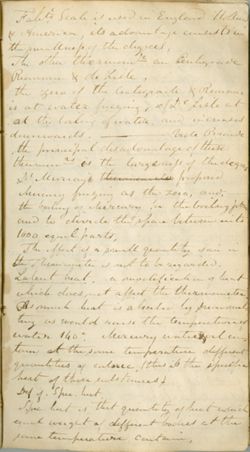 Fahts Scale is used in England Holland
& America, its advantage consists in
the smallness of the degrees,
The other thermomtrs are Centigrade
Reaumur & de Lisle,
the zero of the Centigrade & Reaumur
is at water freezing, & of De Lisle at
at the boiling of water, and increases
downwards.
the principal disadvantage of these
thermtrs is the largeness of the degrees
Dr Murray proposed
Mercury freezing as the zero, and
the boiling of mercury for the boiling point
and to divide the space between into
1000 equal parts,
The effect of a small quantity of air in
the is not to be regarded.
Latent heat, a modification of heat
which does not affect the thermometer
As much heat is absorbed by
as would raise the temperature of
water 140°. Mercury water &
at the same temperature different
quantities of caloric, (this is the specific
heat of those substances)
Def of Spec. heat,
Spec heat is that quantity of heat which
equal weights of different bodies at the
same temperature contain,